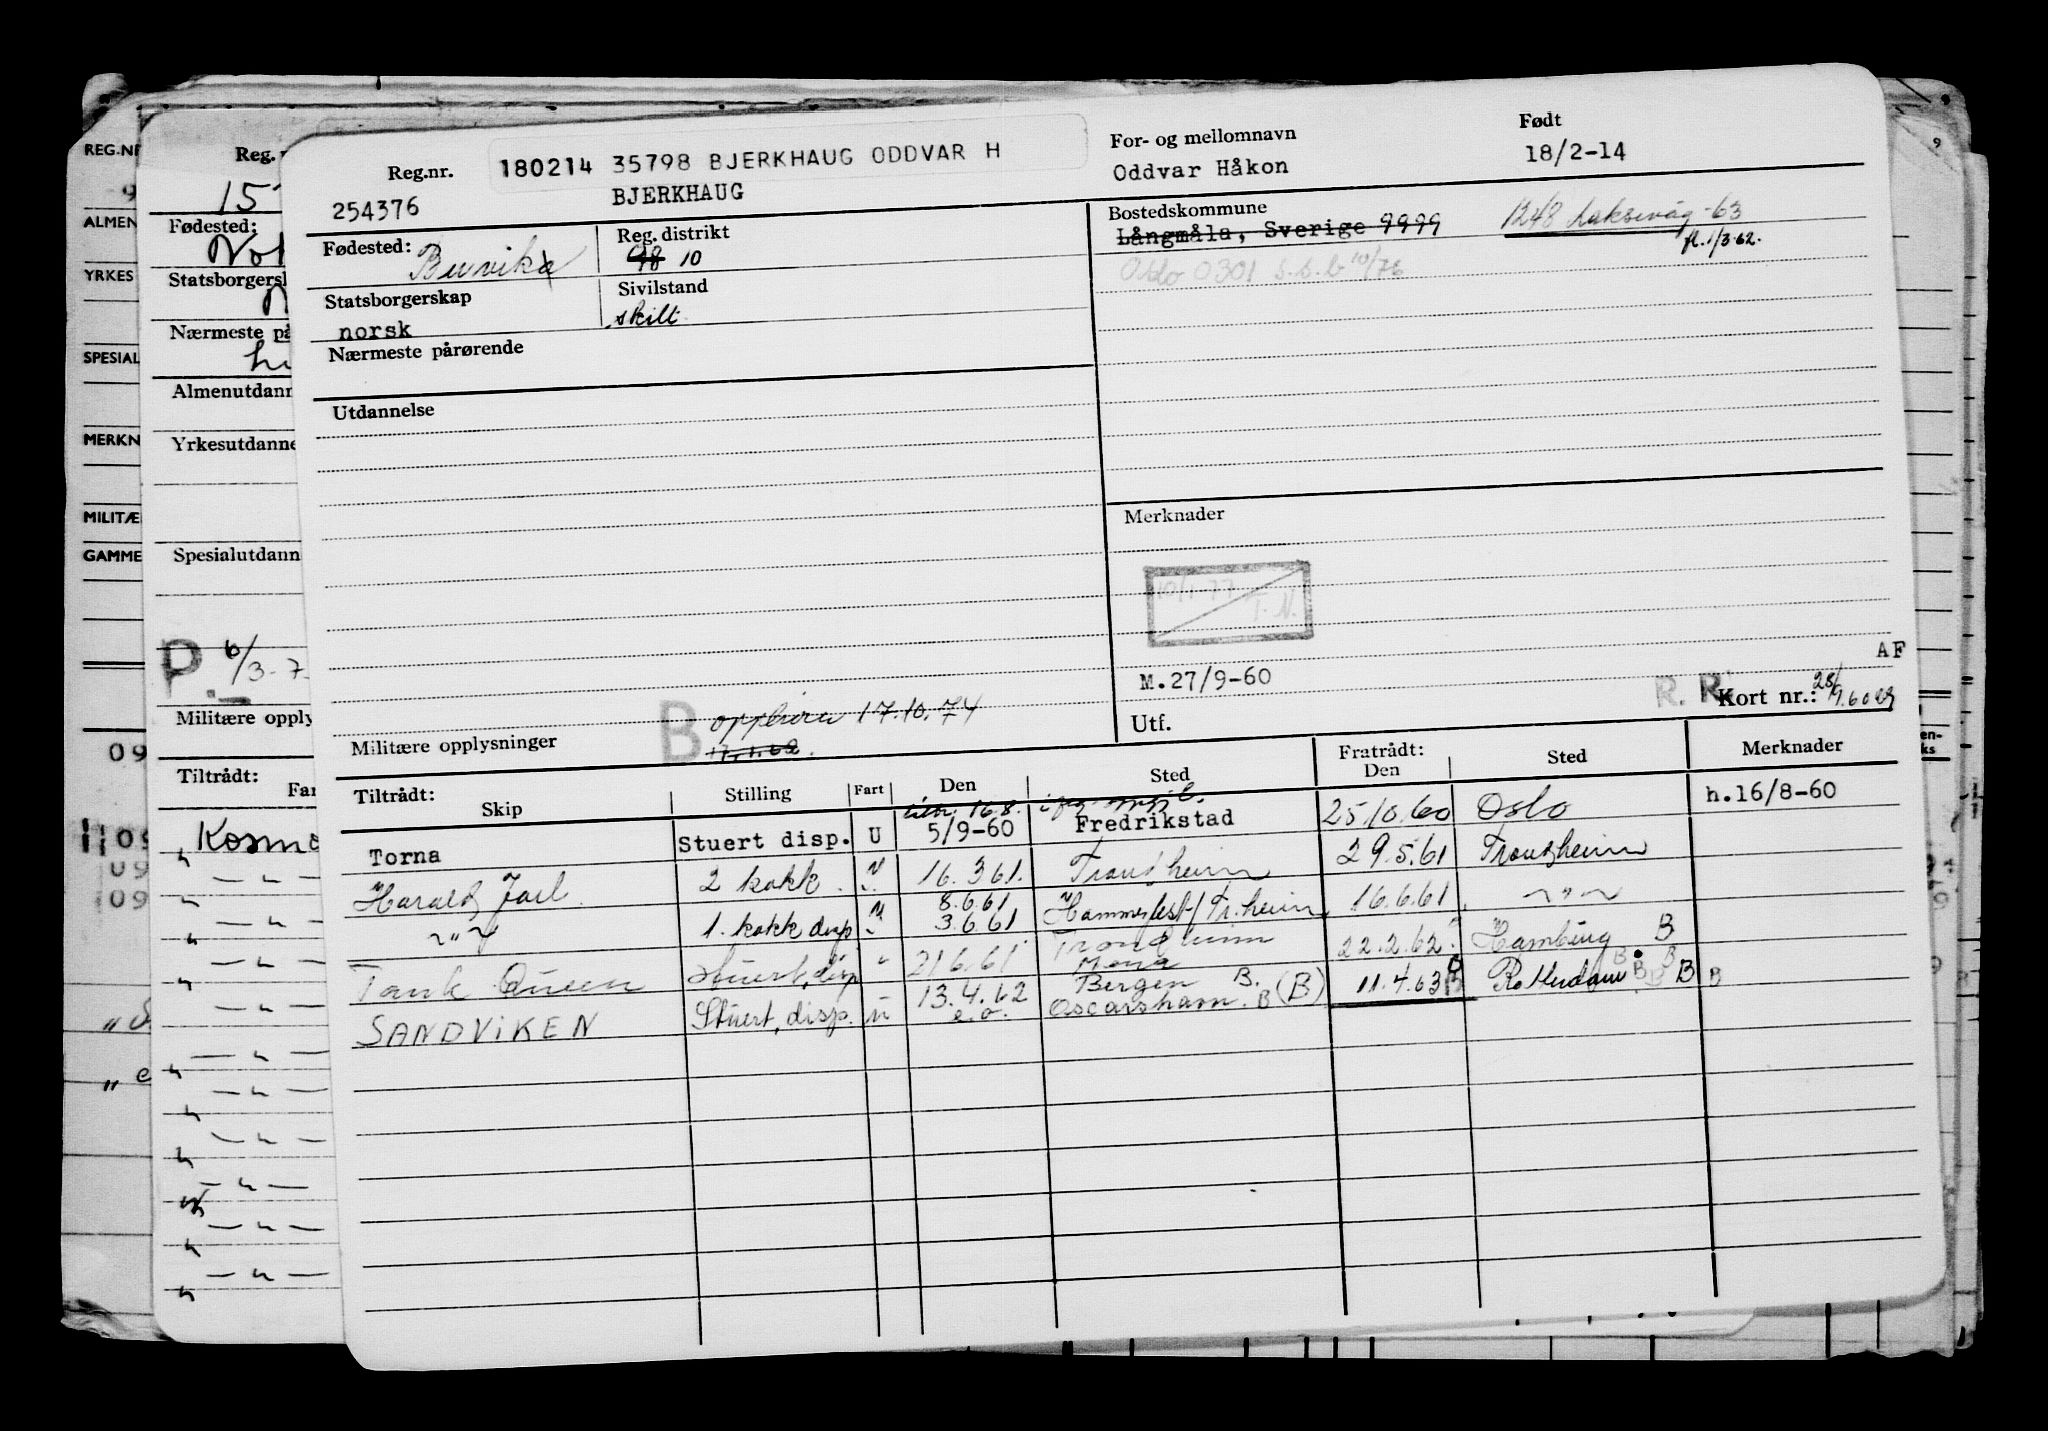 Reg.nr.
180214 35798 BJERKHAUG ODDVAR H
254376
BJERKHAUG
For- og mellomnavn
Oddvar Håkon
Født
18/2-14
Fødested:
Buvika
Reg. distrikt
98 10
Statsborgerskap
norsk
Sivilstand
skilt
Nærmeste pårørende
Utdannelse
Bostedskommune
Långmåla, Sverige 9999
1248 Laksevåg -63
fl. 1/3-62.
Oslo 0301 s.s.b 10/76
Merknader
10/1-77
T.N.
M.27/9-60
AF
R. R.
Kort nr.:
Utf.
Militære opplysninger
B
17.10.74
Tiltrådt:
Skip
Stilling
Fart
Den
Sted
Fratrådt:
Den
Sted
Merknader
16.8.
Torna
Stuert disp.
U
5/9-60
Fredrikstad
25.10.60
Oslo
h.16/8-60
Harald Jarl
2 kokk
16.3.61.
Trondheim
29.5.61
Trondheim
8.6.61
~"~
1. kokk disp
3.6.61
Hammerfest/Tr.heim
16.6.61
~"~
Trondheim
Tank Queen
Stuert, disp
"
21.6.61
Mena
22.2.62.
Hamburg B
Bergen B.
SANDVIKEN
Stuert, disp.
u
13.4.62
e.o.
Oscarshamn. B (B)
11.4.63
Rotterdam B B
REG.NR
9
ALMEN
YRKES
SPESIAL
MERKN
MILITÆ
GAMME
09
09
09
Reg.
15
Fødested:
Statsborgersk
Nærmeste på
Almenutdann
Yrkesutdanne
Spesialutdann
P
6/3-7
Militære opply
Tiltrådt:
Far
Kosmo